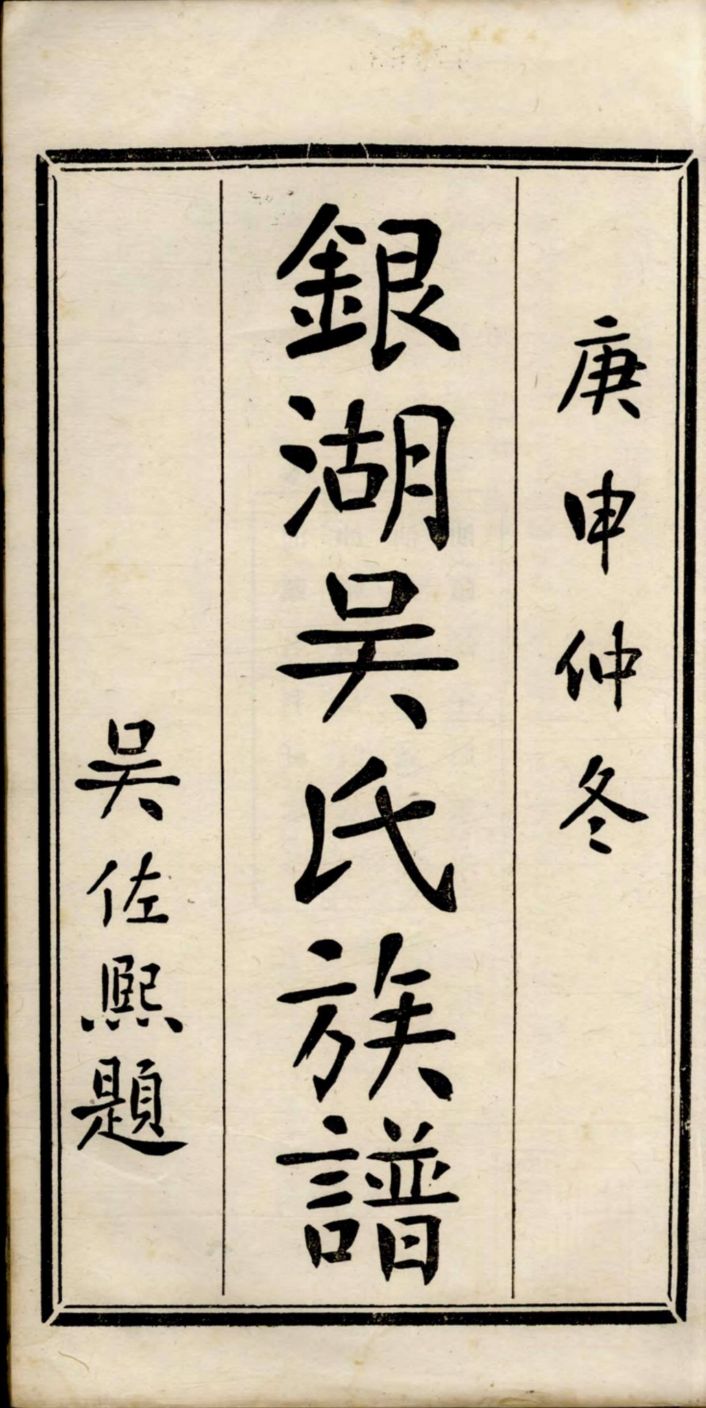 庚申仲冬
銀湖吴氏族譜
吴佐熙題